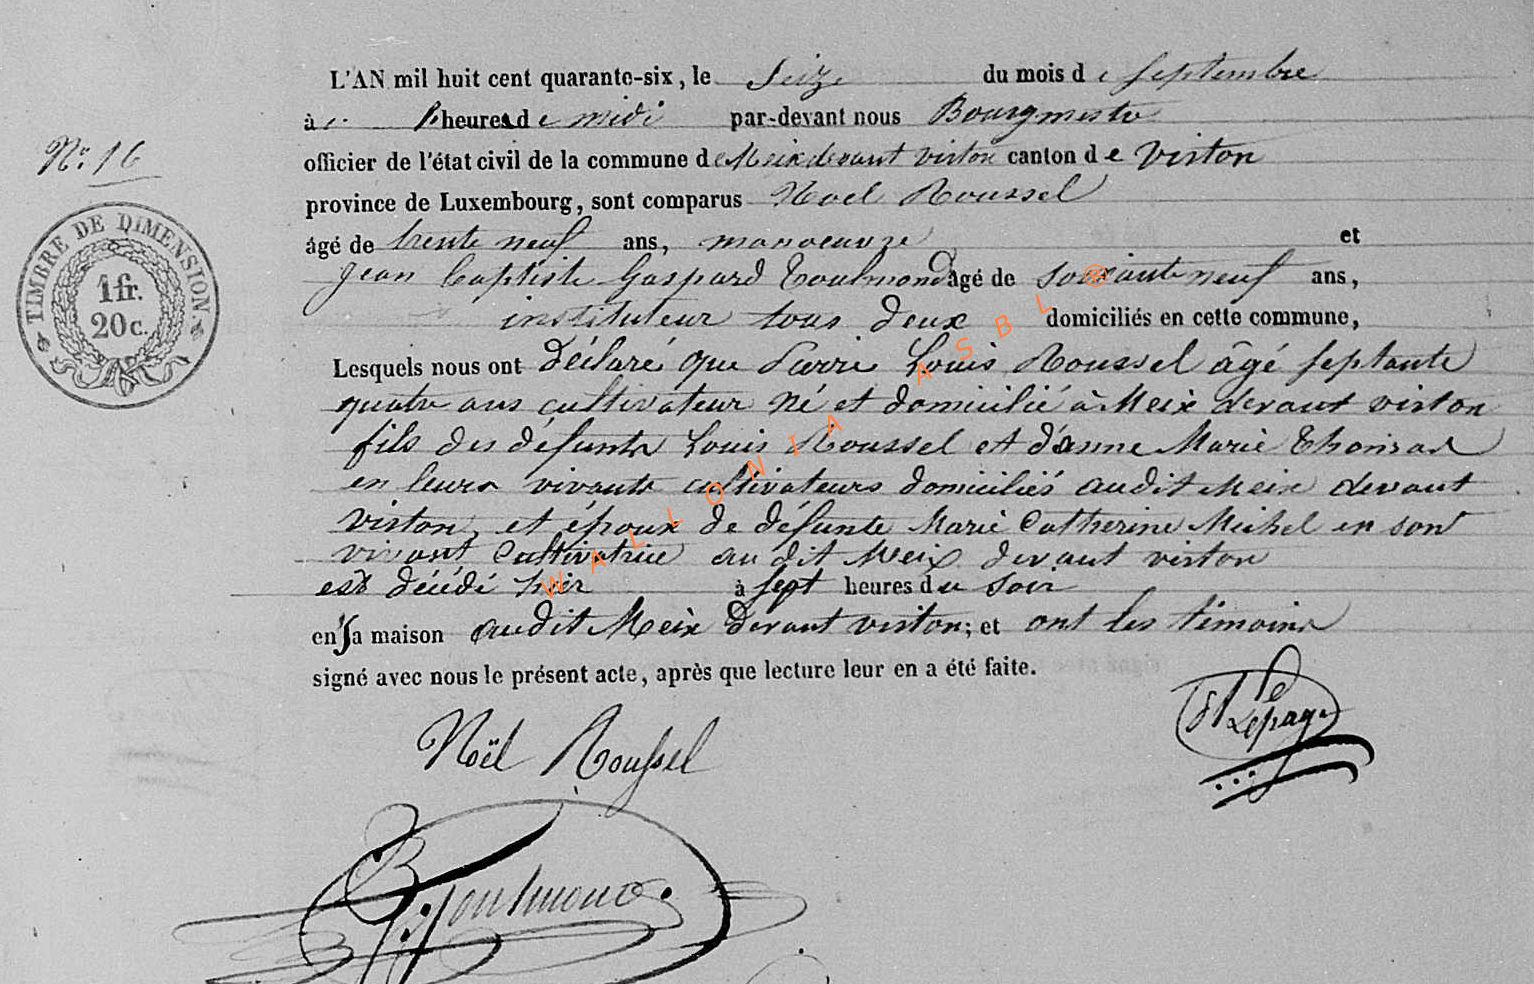 L'AN mil huit cent quarante-six, le Seize du mois de Septembre
à heures de midi par-devant nous Bourgmestre
No. 16
officier de l'état civil de la commune de Meix devant virton canton de Virton
province de Luxembourg, sont comparus Noel Roussel
âgé de trente neuf ans, manoeuvre et
Jean Baptiste Gaspard Toulmond âgé de soixante neuf ans,
instituteur tous deux domiciliés en cette commune,
Lesquels nous ont Déclaré que Pierre Louis Roussel âgé septante
quatre ans cultivateur né et domicilié à Meix devant virton
fils des défunts Louis Roussel et d'anne Marie
en leurs vivants cultivateurs domiciliés audit Meix devant
virton, et époux de défunte Marie Catherine Michel en son
vivant Cultivatrice audit Meix devant virton
est décédé hier à sept heures du soir
en sa maison audit Meix Devant virton; et ont les témoins
signé avec nous le présent acte, après que lecture leur en a été faite.
TIMBRE DE DIMENSION.
1fr.
20c.
WALLONIA ASBL ®
Noël Roussel
Lepage
Toulmond